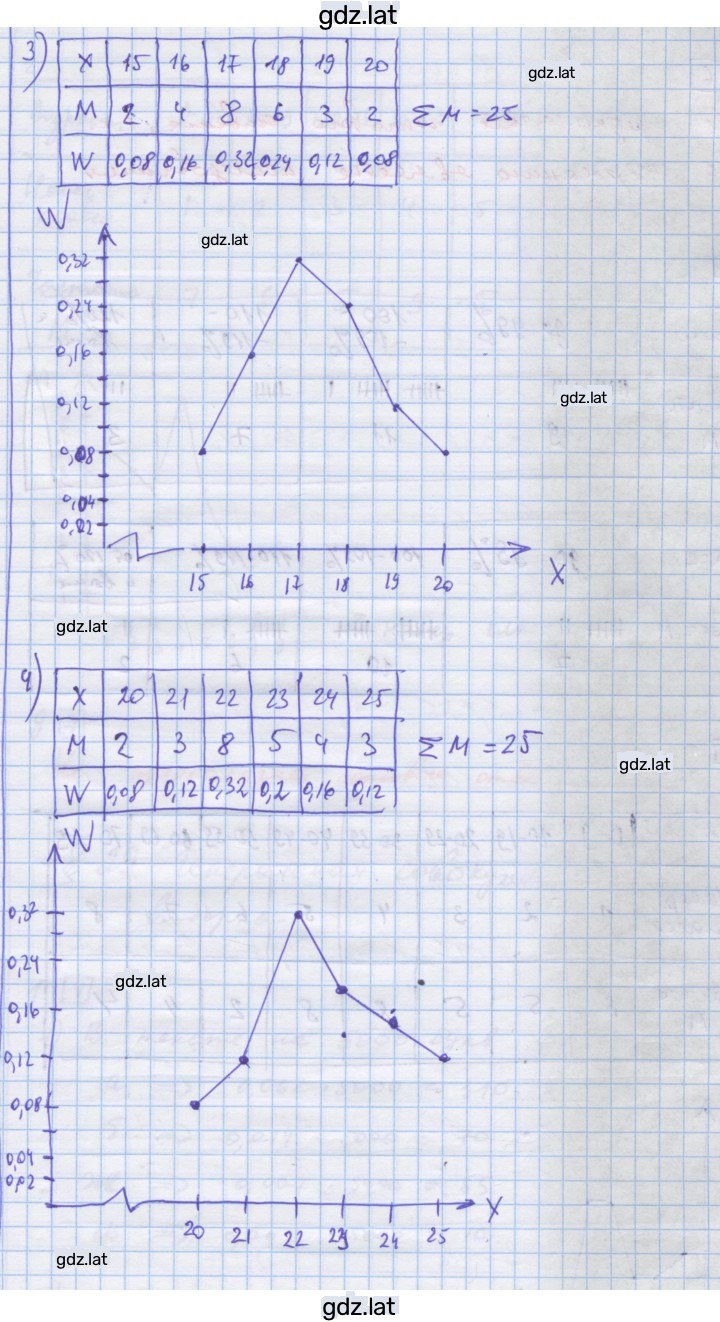 gdz.lat
3)
X 15 16 17 18 19 20
gdz.lat
M 2 4 8 6 3 2 ΣM = 25
W 0,08 0,16 0,32 0,24 0,12 0,08
W
gdz.lat
0,32
0,24
0,16
gdz.lat
0,12
0,08
0,04
0,02
15 16 17 18 19 20
X
gdz.lat
4)
X 20 21 22 23 24 25
M 2 3 8 5 4 3 ΣM = 25
gdz.lat
W 0,08 0,12 0,32 0,2 0,16 0,12
W
0,32
0,24
gdz.lat
0,16
0,12
0,08
0,04
0,02
X
20 21 22 23 24 25
gdz.lat
gdz.lat